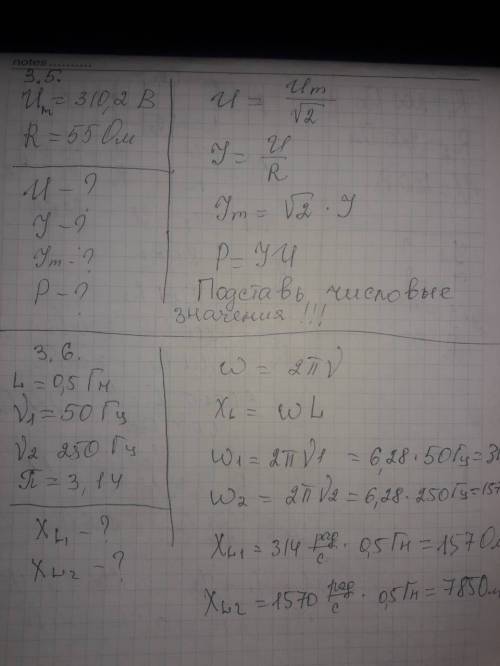 notes..........
3.5.
Um = 310,2 В
R = 55 Ом
U - ?
I - ?
Im - ?
P - ?
U = Um/√2
I = U/R
Im = √2 · I
P = IU
Подставь числовые
значения !!!
3.6.
L = 0,5 Гн
ν1 = 50 Гц
ν2 250 Гц
π = 3,14
XL1 - ?
XL2 - ?
ω = 2πν
XL = ωL
ω1 = 2πν1 = 6,28·50Гц=31
ω2 = 2πν2 = 6,28·250Гц=157
XL1 = 314 рад/с · 0,5Гн = 157Ом
XL2 = 1570 рад/с · 0,5Гн = 785Ом